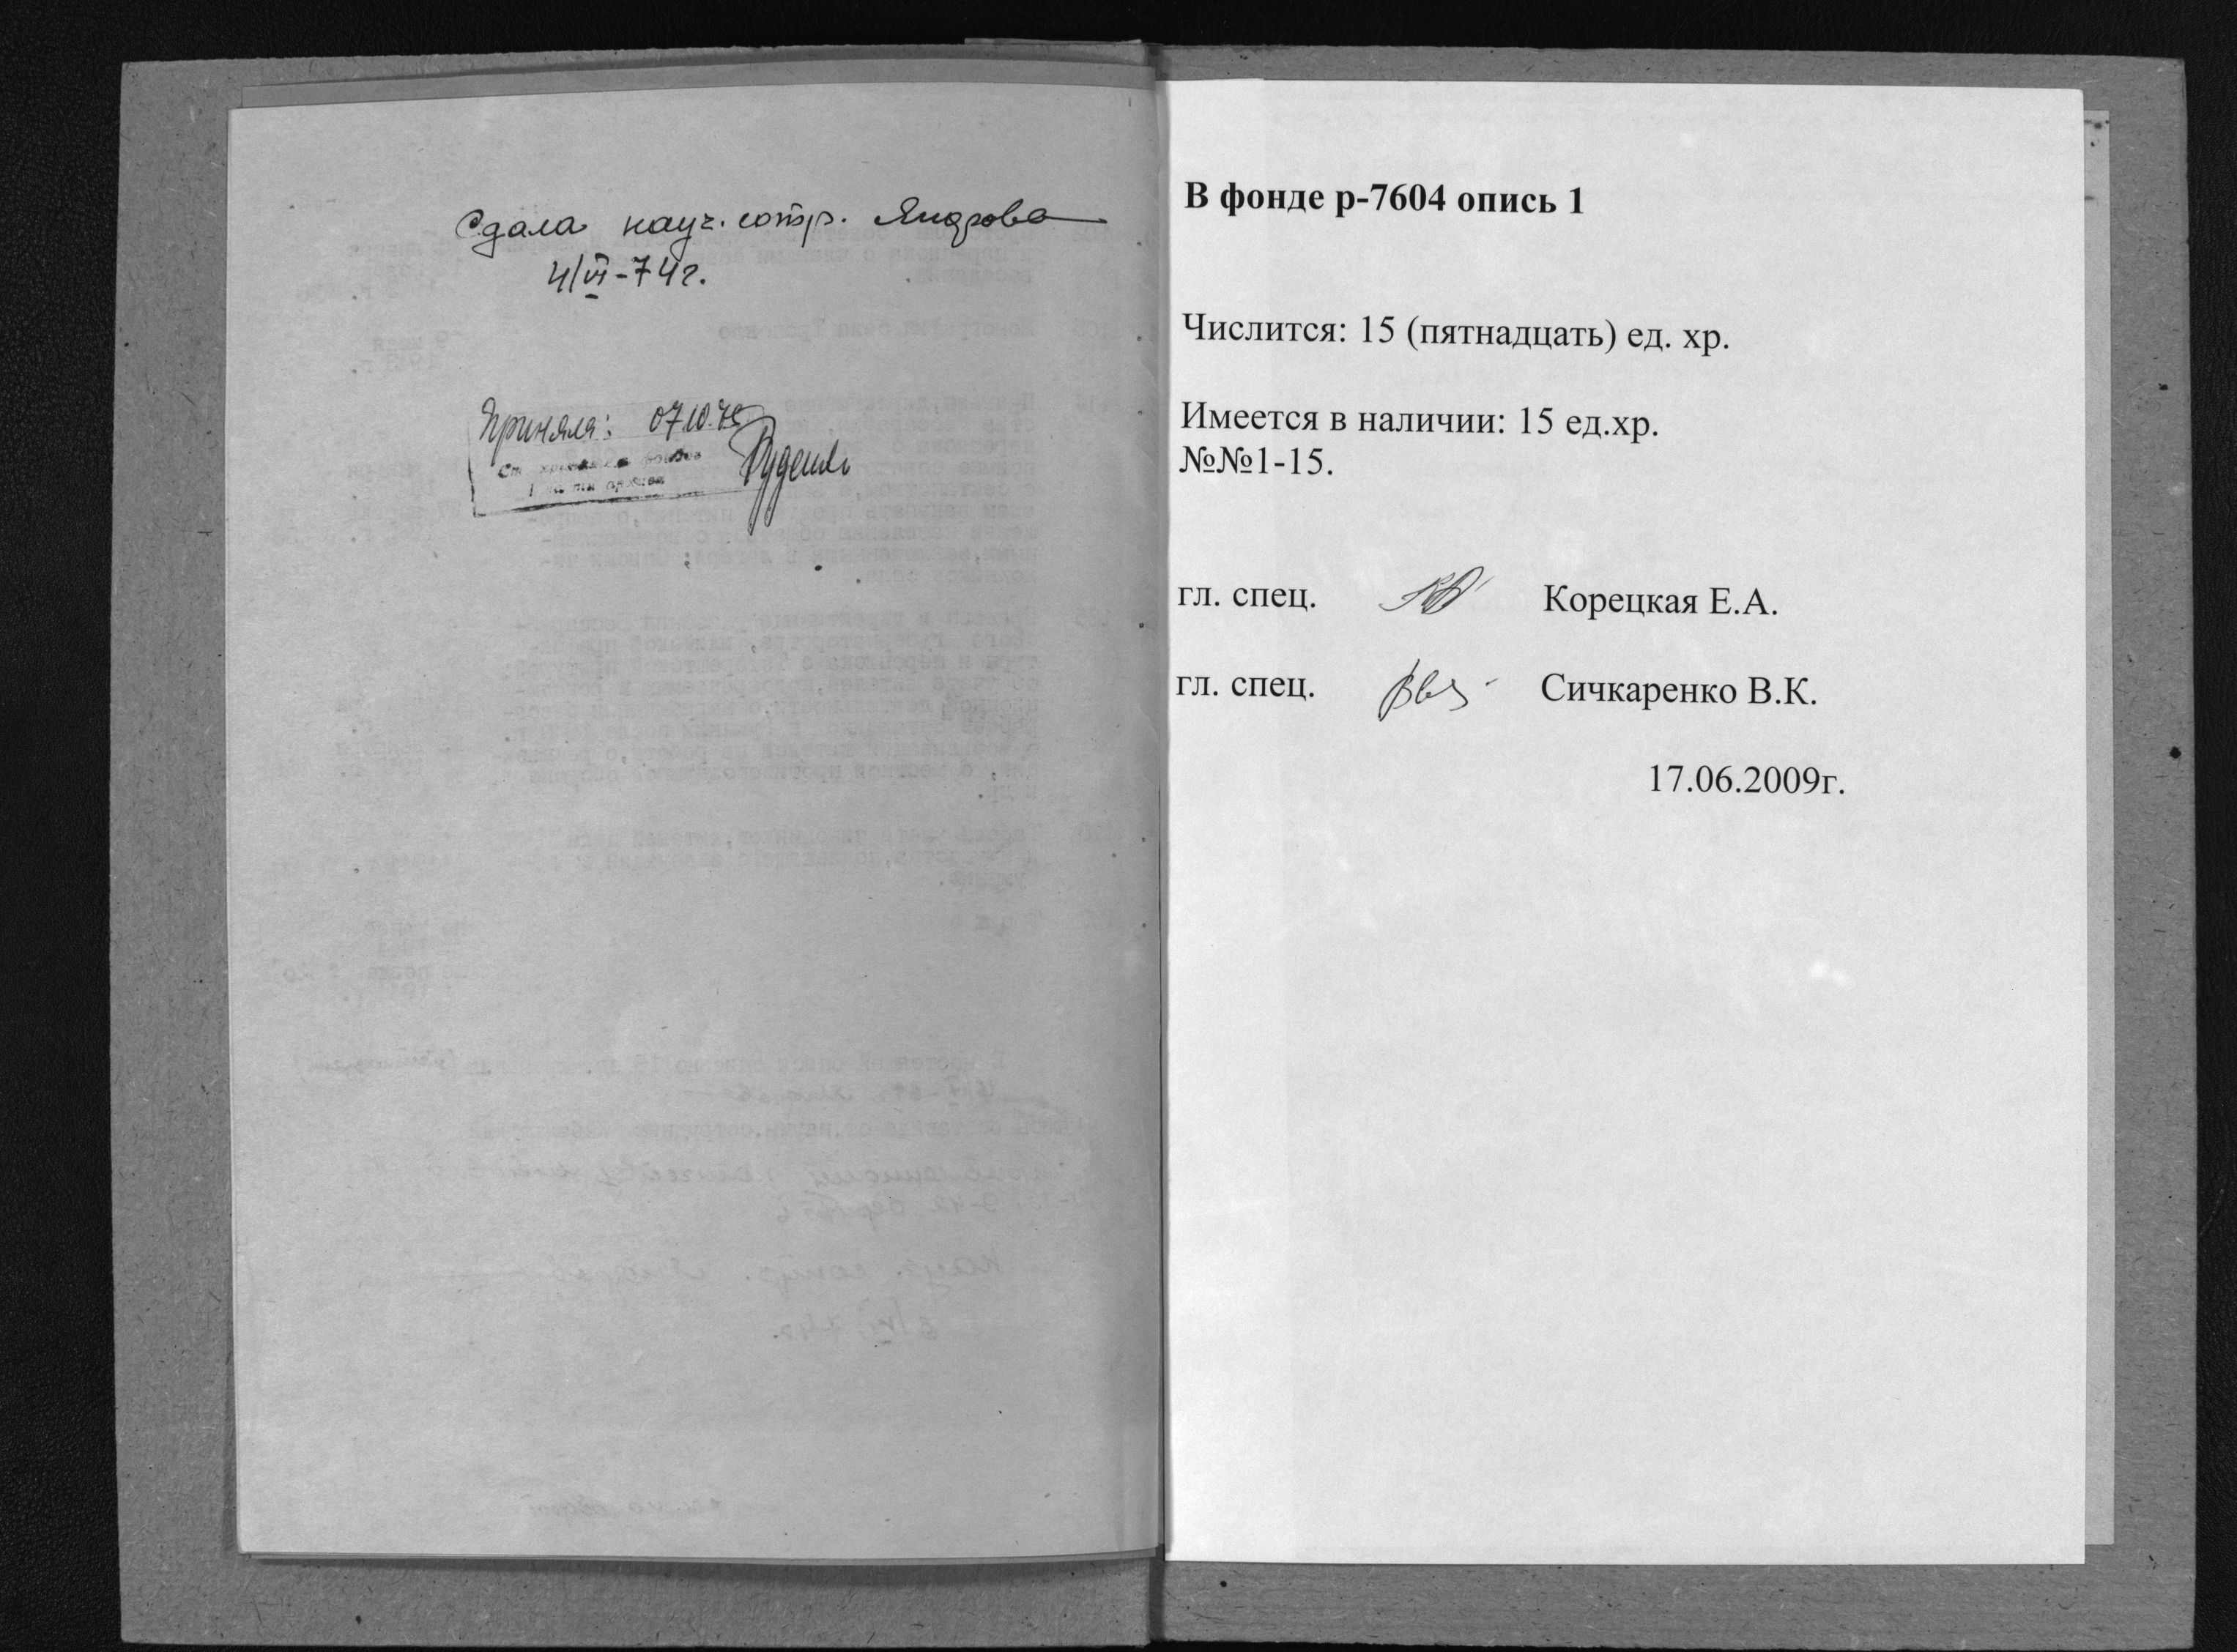 Сдала науч. сотр. Яндрова
4/VI-74г.
Приняла: 07.10.74
Ст. хранитель фондов
В фонде р-7604 опись 1
Числится: 15 (пятнадцать) ед. хр.
Имеется в наличии: 15 ед.хр.
№№1-15.
гл. спец. Корецкая Е.А.
гл. спец. Сичкаренко В.К.
17.06.2009г.